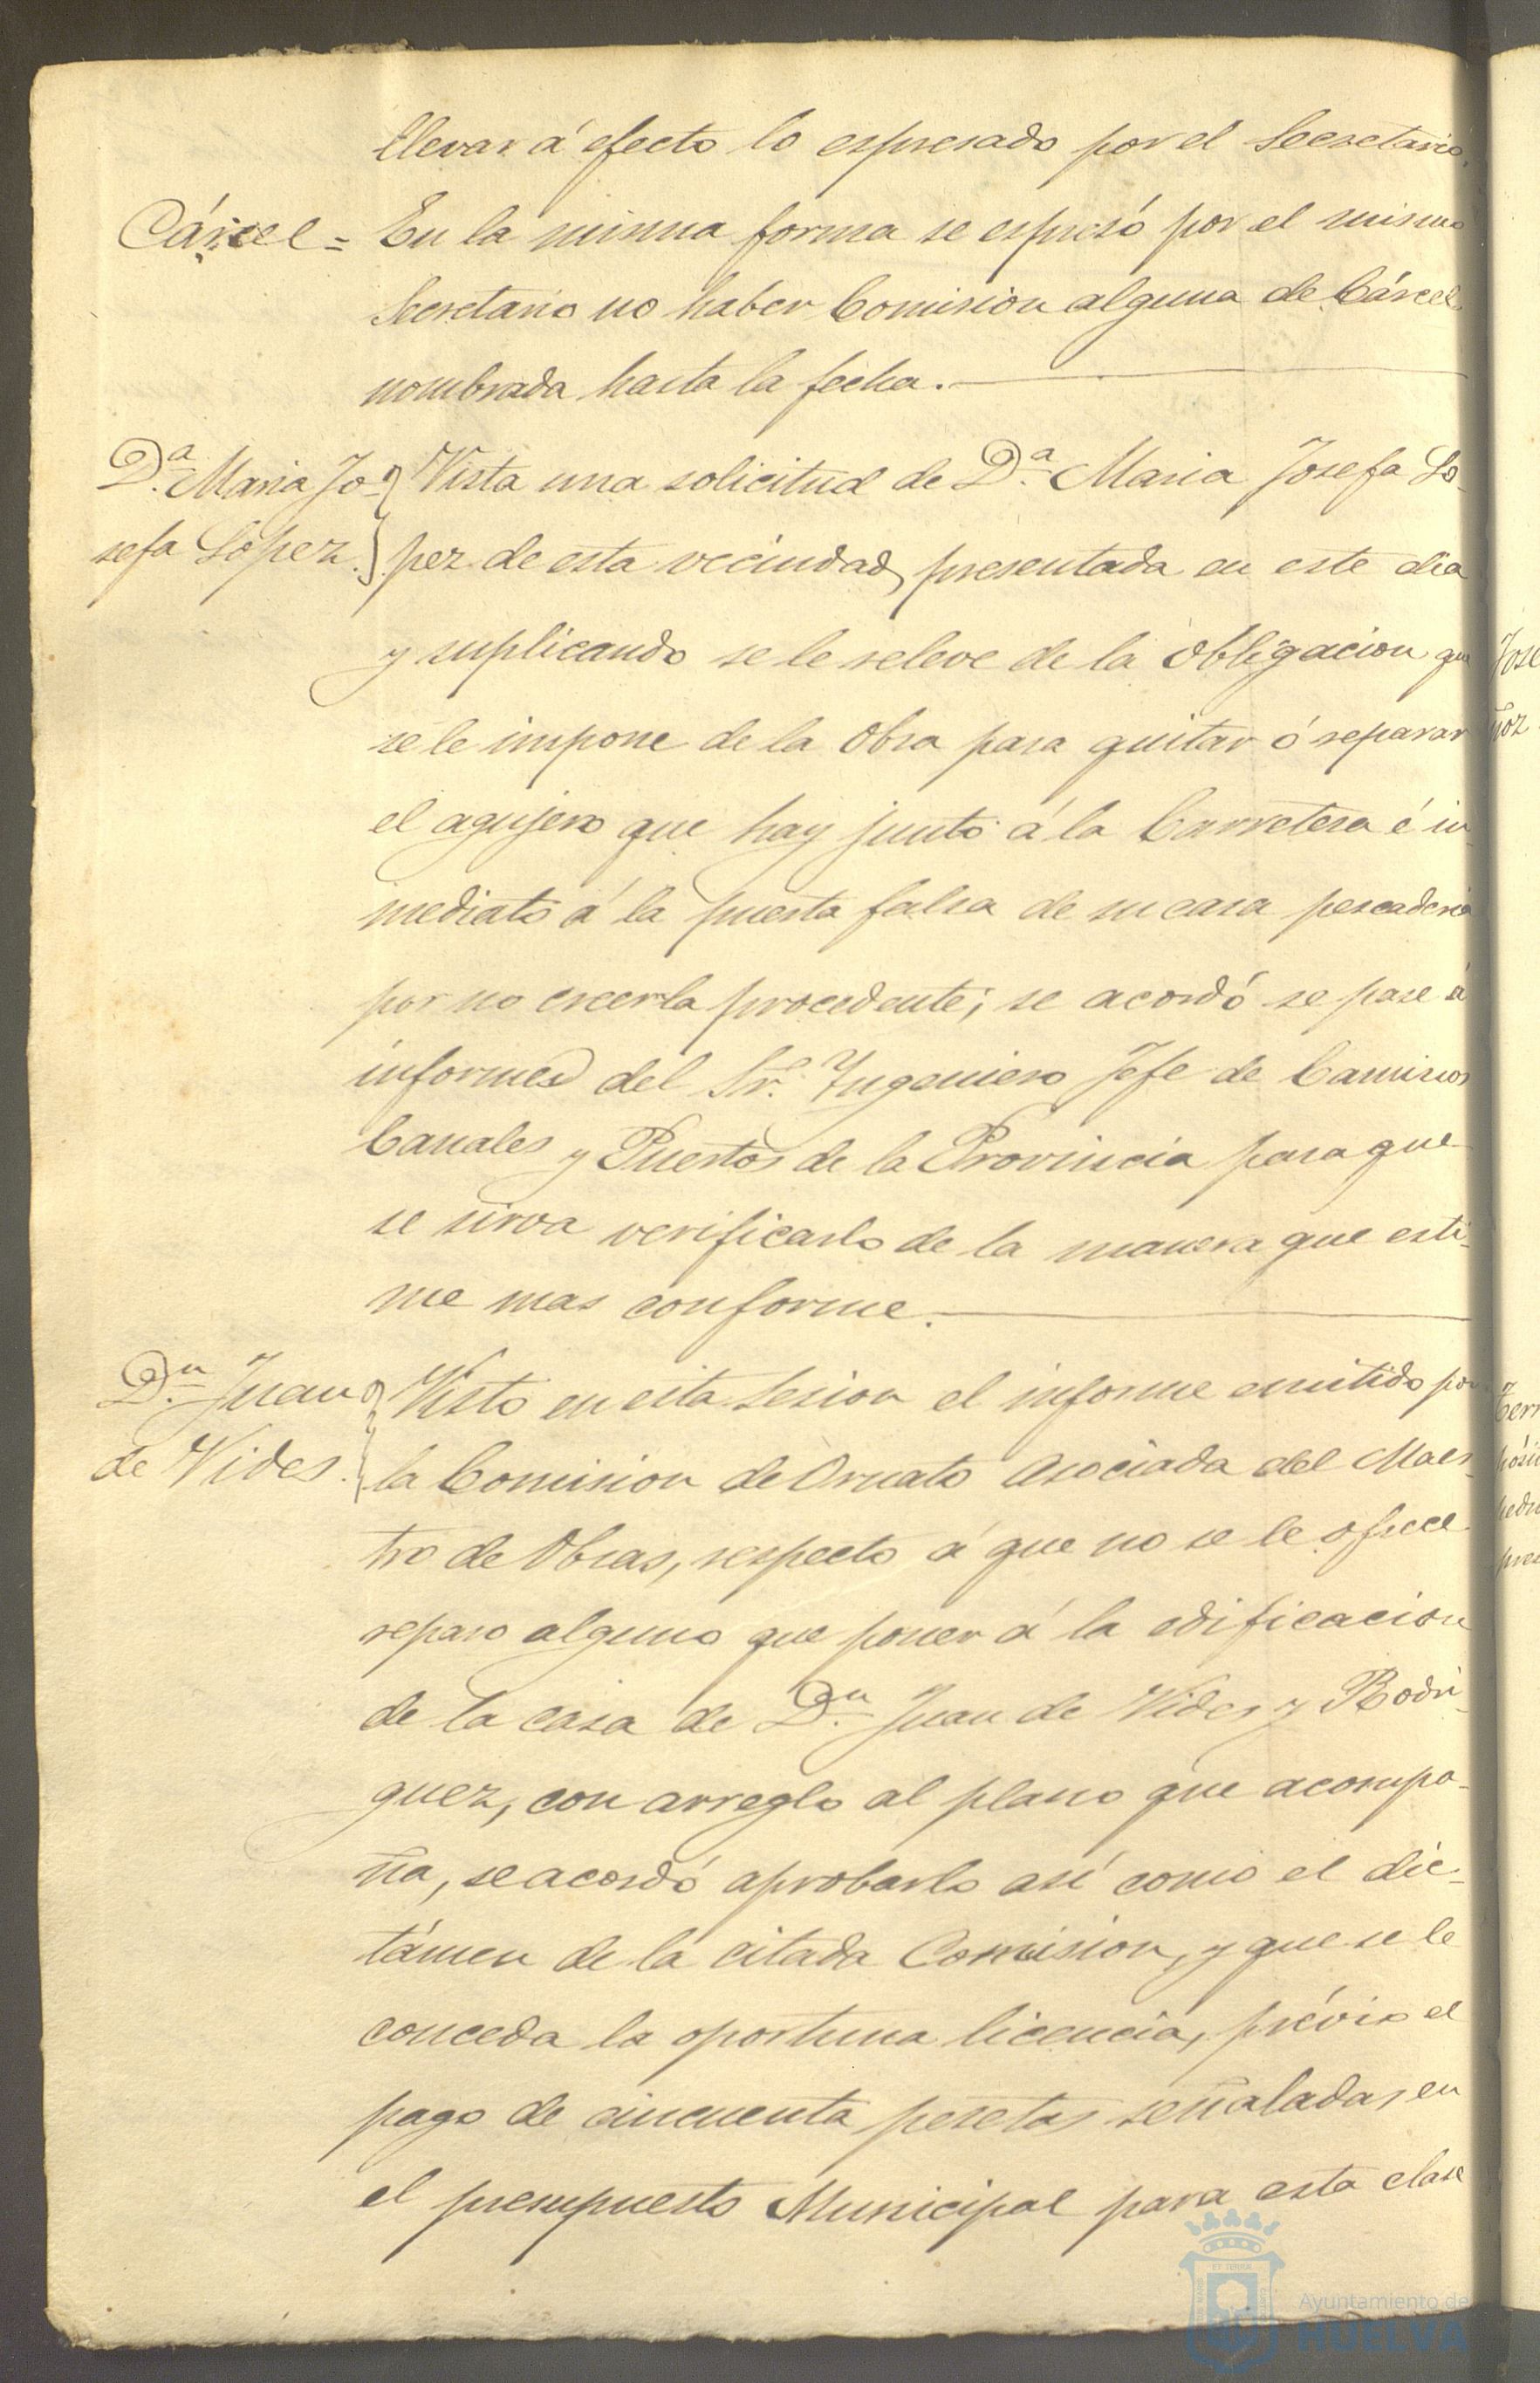 llevar á efecto lo espresado por el Secretario.
Cárcel = En la misma forma se espresó por el mismo
Secretario no haber Comision alguna de Cárcel
nombrada hasta la fecha.
Dª Maria Jo- Vista una solicitud de Dª Maria Josefa Lo-
sefa Lopez. pez de esta vecindad, presentada en este dia
y suplicando se le releve de la obligacion que
se le impone de la obra para quitar ó reparar
el agujero que hay junto á la Carretera é in-
mediato á la puerta falsa de su casa pescaderia
por no creerla procedente; se acordó se pase á
informes del Sr. Ingeniero Jefe de Caminos
Canales y Puertos de la Provincia para que
se sirva verificarlo de la manera que esti-
me mas conforme.
Dn Juan Visto en esta Sesion el informe emitido por
de Vides. la Comision de Ornato asociada del Maes-
tro de Obras, respecto á que no se le ofrece
reparo alguno que poner á la edificacion
de la casa de Dn Juan de Vides y Rodri-
guez, con arreglo al plano que acompa-
ña, se acordó aprobarlo así como el dic-
támen de la citada Comision, y que se le
conceda la oportuna licencia, prévio el
pago de cincuenta pesetas señaladas en
el presupuesto Municipal para esta clase
Ayuntamiento de
HUELVA